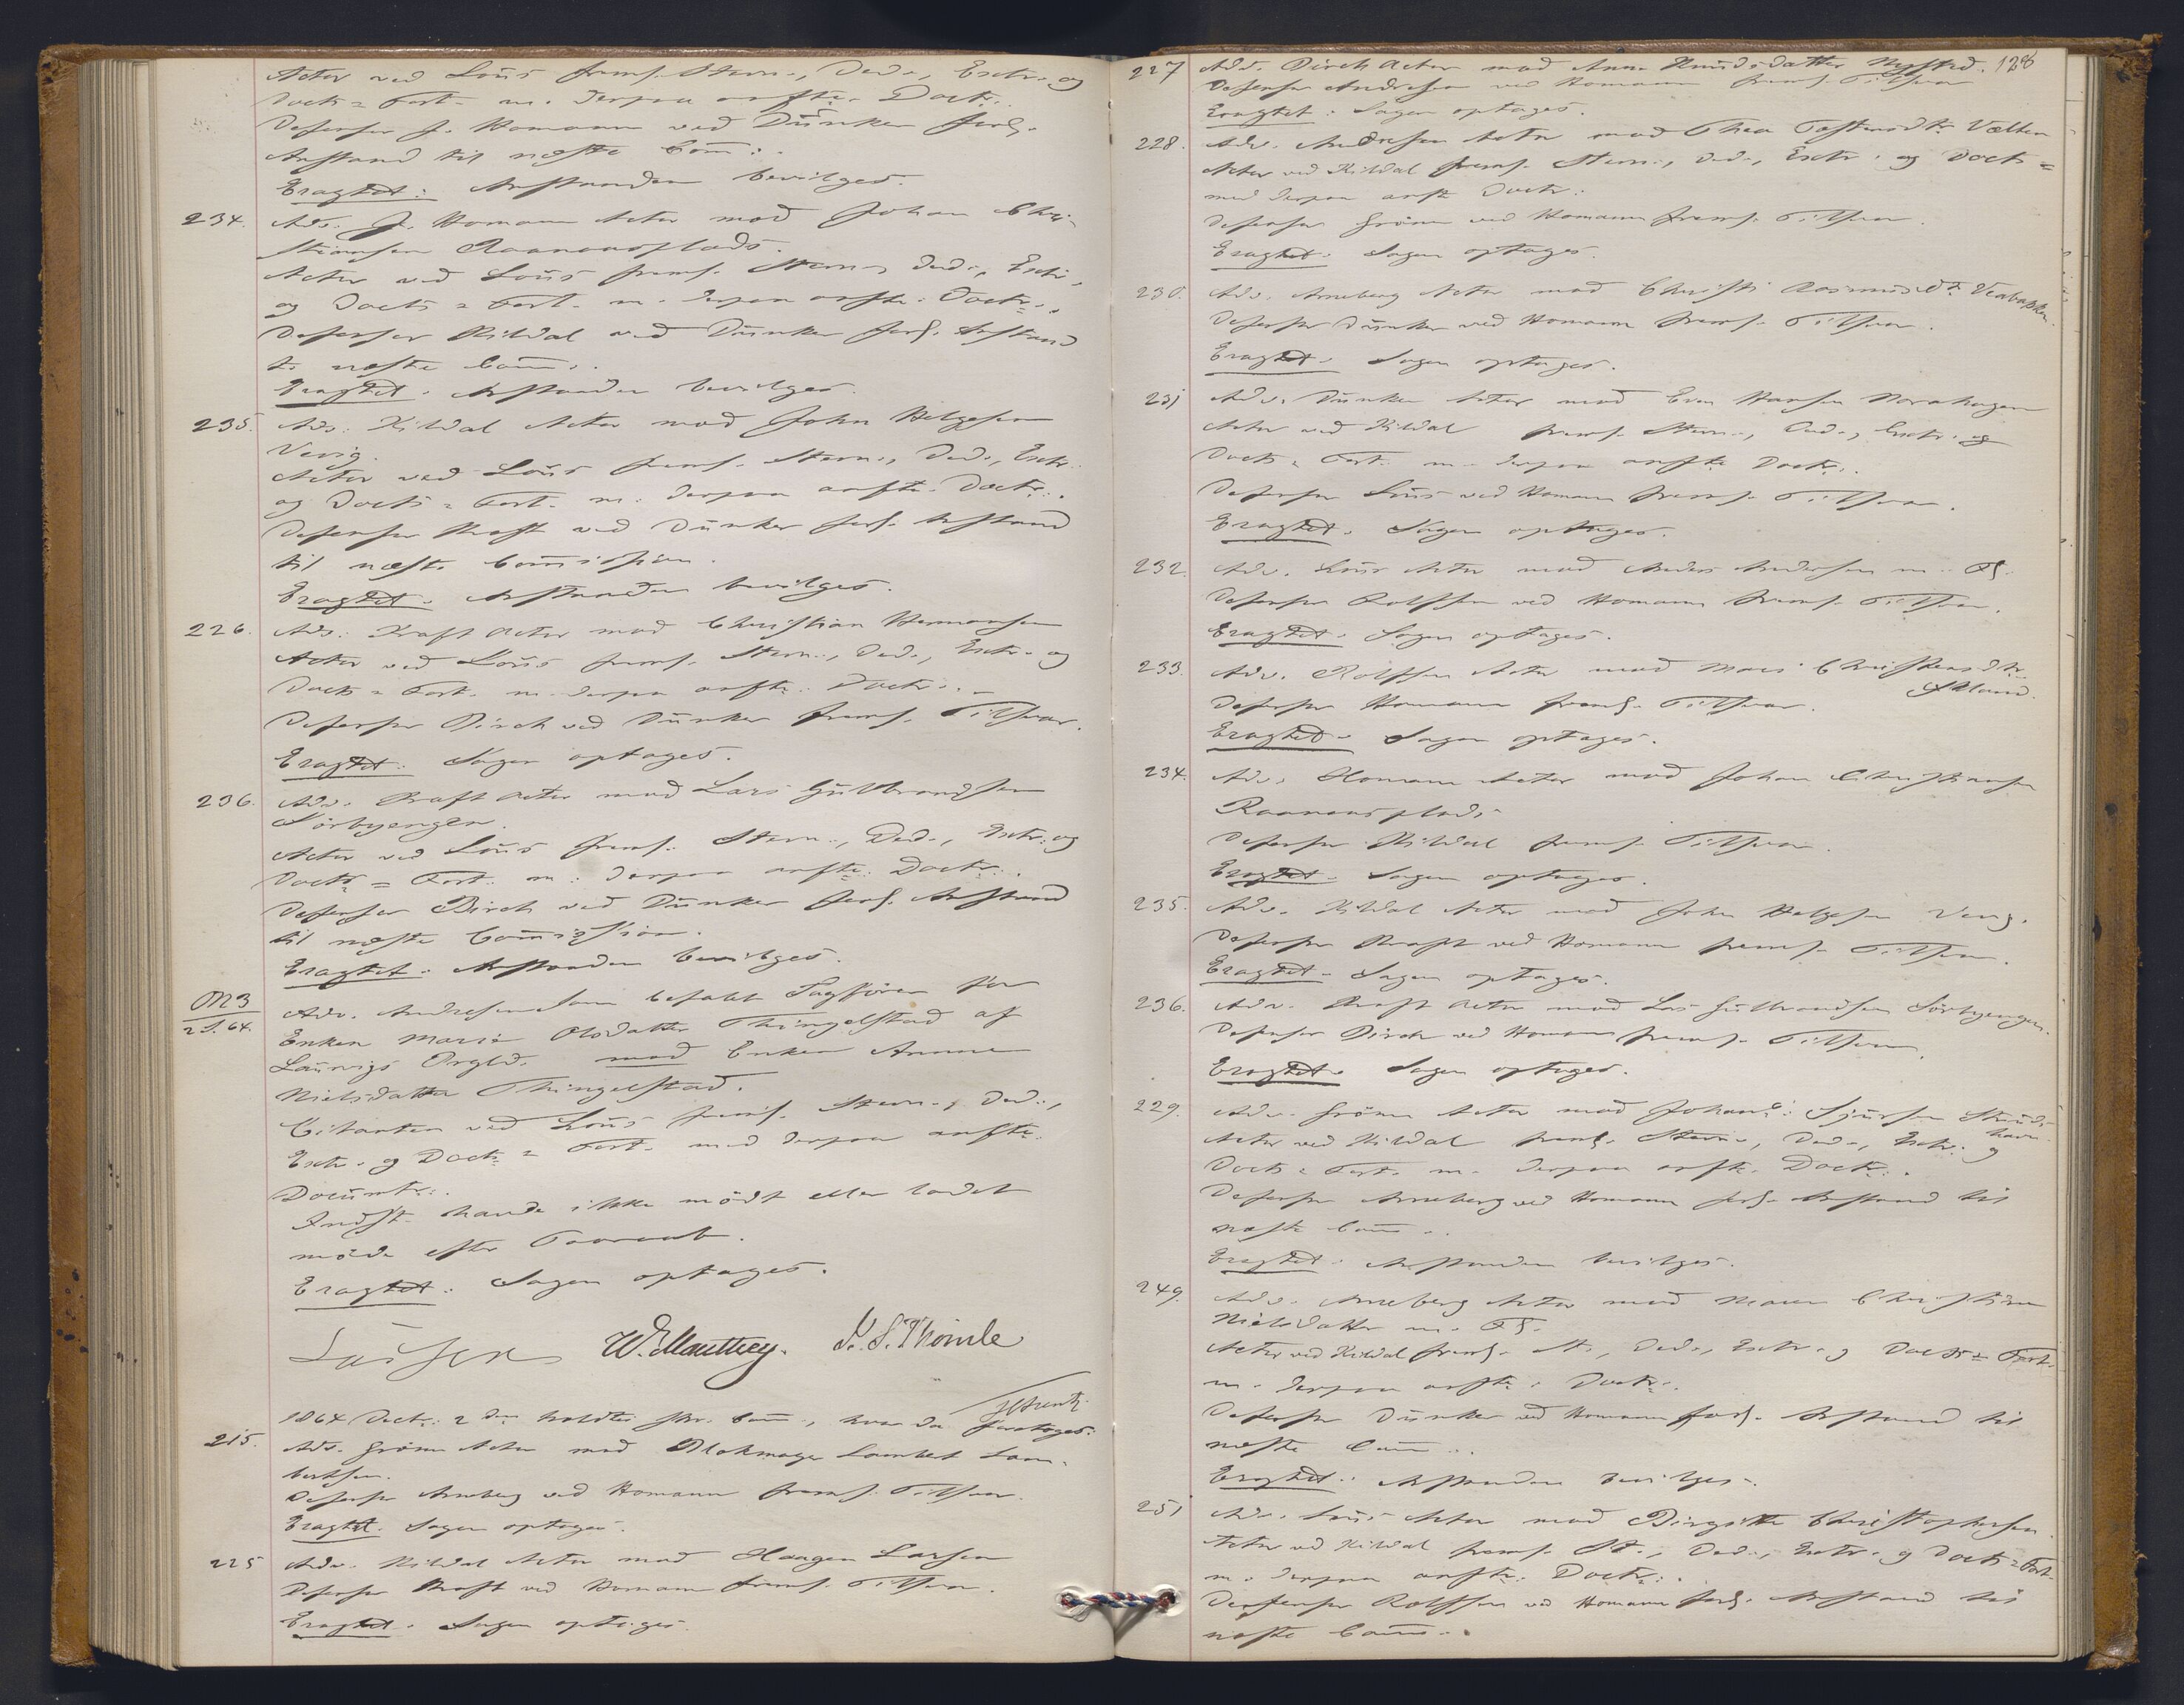 Actor ved Löüs freml. Stevn., Ded., Extr. og
Docts = Fort. m. derpaa anfte. Doctr.
Defensor J. Homann ved Dünker forl.
Anstand til næste Com:.
Eragtet: Anstanden bevilges.
234. Adv. J. Homann Actor mod Johan Chri-
stiansen Raanaasplads.
Actor ved Löüs freml. Stevn., Ded., Extr.,
og Docts = Fort. m. derpaa anfte. Doctr.
Defensor Kildal ved Dünker forl. Anstand
t. næste Com:.
Eragtet. Anstanden bevilges.
235. Adv. Kildal Actor mod John Helgesen
Venig.
Actor ved Löüs freml. Stevn., Ded., Extr.
og Docts = Fort. m. derpaa anfte. Doctr.
Defensor Kraft ved Dünker forl. Anstand
til næste Commission.
Eragtet. Anstanden bevilges.
226. Adv. Kraft Actor mod Christian Hermansen
Actor ved Löüs freml. Stevn., Ded., Extr. og
Docts = Fort. m. derpaa anfte. Doctr.
Defensor Birch ved Dünker freml. Tilsvar.
Eragtet: Sagen optages.
236. Adv. Kraft Actor mod Lars Gülbrandsen
Sörbyengen.
Actor ved Löüs freml. Stevn., Ded., Extr. og
Docts = Fort. m. derpaa anfte. Doctr.
Defensor Birch ved Dünker forl. Anstand
til næste Commission.
Eragtet. Anstanden bevilges.
M3
2 S. 64. Adv. Andresen som befalet Sagförer for
Enken Maria Olsdatter Thingelstad af
Laürvigs mod Enken Anne
Nielsdatter Thingelstad.
Citanten ved Löüs freml. Stevn., Ded.,
Extr. og Docts = Fort. med derpaa anfte.
Documtr.
Indst. havde ikke mödt eller ladet
möde efter Paaraab.
Eragtet: Sagen optages.
Lassen W. E. Manthey. S. S. Thomle
1864 Dectr. 2den holdtes com., hvor da foretoges:
215. Adv. Grönn Actor mod Blokmager Lambert Lam-
bertsen.
Defensor Arneberg ved Homann freml. Tilsvar.
Eragtet. Sagen optages.
225 Adv. Kildal Actor mod Haagen Larsen
Defensor Kraft ved Homann freml. Tilsvar.
Eragtet. Sagen optages.
128
227 Adv. Birch Actor mod Anne Knudsdatter Nystad.
Defensor Andresen ved Homann freml. Tilsvar
Eragtet: Sagen optages.
228. Adv. Andresen Actor mod Thea Vælten
Actor ved Kildal freml. Stevn., Ded., Extr. og Docts =
med derpaa anfte Doctr.
Defensor Grönn ved Homann freml. Tilsvar.
Eragtet. Sagen optages.
230. Adv. Arneberg Actor mod Christi
Defensor Dünker ved Homann freml. Tilsvar.
Eragtet. Sagen optages.
231 Adv. Dünker Actor mod Even Hansen Norahagen
Actor ved Kildal freml. Stevn., Ded., Extr. og
Docts = Fort. m. derpaa anfte Doctr.
Defensor Löüs ved Homann freml. Tilsvar.
Eragtet. Sagen optages.
232. Adv. Löüs Actor mod Anders Andersen m. Fl.
Defensor Rolfsen ved Homann freml. Tilsvar.
Eragtet. Sagen optages.
233. Adv. Rolfsen Actor mod Mari Christensdtr.
Defensor Homann freml. Tilsvar.
Eragtet. Sagen optages.
234. Adv. Homann Actor mod Johan Christiansen
Raanaasplads
Defensor Kildal freml. Tilsvar.
Eragtet. Sagen optages.
235. Adv. Kildal Actor mod John Helgesen Venig.
Defensor Kraft ved Homann freml. Tilsvar.
Eragtet. Sagen optages.
236. Adv. Kraft Actor mod Lars Gülbrandsen Sörbyengen.
Defensor Birch ved Homann freml. Tilsvar.
Eragtet. Sagen optages.
229. Adv. Grönn Actor mod Johans.
Actor ved Kildal freml. Stevn., Ded., Extr. og
Docts = Fort. m. derpaa anfte. Doctr.
Defensor Arneberg ved Homann forl. Anstand til
næste Com:.
Eragtet. Anstanden bevilges.
249. Adv. Arneberg Actor mod Maren Christine
Nielsdatter m. Fl.
Actor ved Kildal freml. St., Ded., Extr. og Docts = Fort.
m. derpaa anfte. Doctr.
Defensor Dünker ved Homann forl. Anstand til
næste Com:.
Eragtet: Anstanden bevilges.
251 Adv. Löüs Actor mod Birgitte Christophersen.
Actor ved Kildal freml. St., Ded., Extr. og Docts = Fort.
m. derpaa anfte. Doctr.
Defensor Rolfsen ved Homann forl. Anstand til
næste Com:.